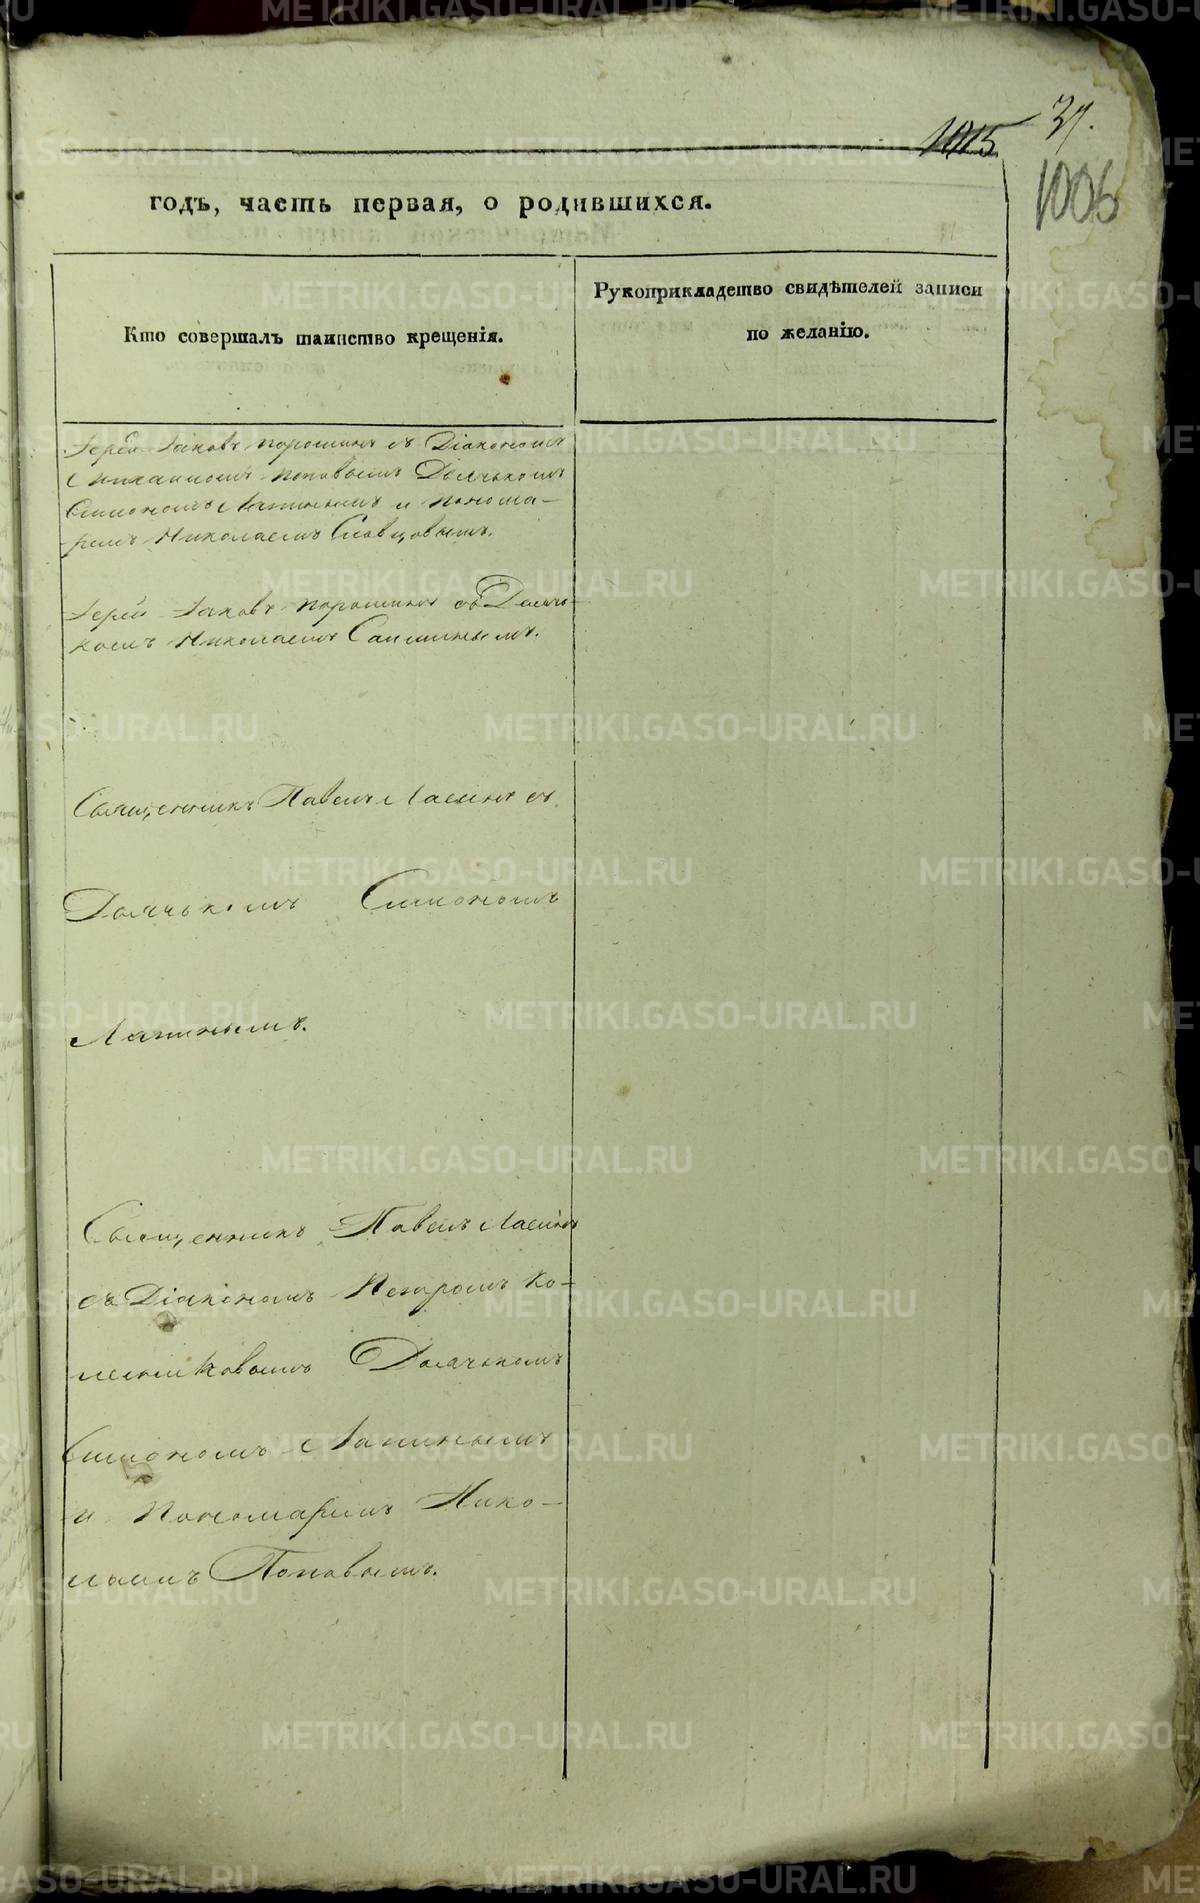 31.
1015
1006
годъ, часть первая, о родившихся.
Кто совершалъ таинство крещенія.
Рукоприкладство свидѣтелей записи
по желанію.
Іерей Іаковъ Порошинъ съ Діакономъ
Михаиломъ Поповымъ Дьячькомъ
Симономъ Лапинымъ и Понома-
ремъ Николаемъ Словцовымъ.
Іерей Іаковъ Порошинъ съ Дьячь-
комъ Николаемъ
Священникъ Павелъ съ
Дьячькомъ Симономъ
Лапинымъ.
Священникъ Павелъ
съ Діакономъ Петромъ Ко-
Дьячькомъ
Симономъ Лапинымъ
и Пономаремъ Нико-
лаемъ Поповымъ.
METRIKI.GASO-URAL.RU